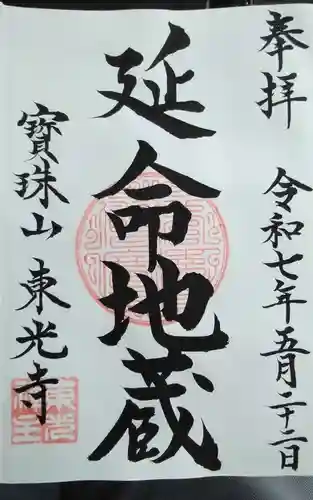 奉拝
令和七年五月二十二日
延命地蔵
寶珠山 東光寺